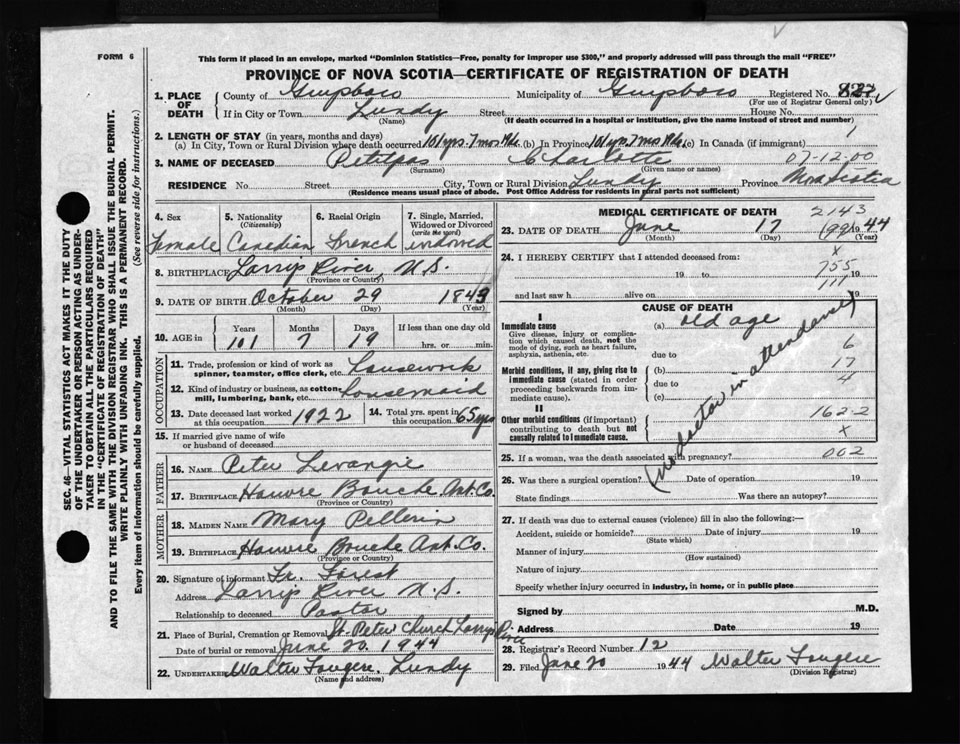 FORM 6
This form if placed in an envelope, marked "Dominion Statistics—Free, penalty for improper use $300," and properly addressed will pass through the mail "FREE"
PROVINCE OF NOVA SCOTIA—CERTIFICATE OF REGISTRATION OF DEATH
SEC. 46—VITAL STATISTICS ACT MAKES IT THE DUTY
OF THE UNDERTAKER OR PERSON ACTING AS UNDER-
TAKER TO OBTAIN ALL THE PARTICULARS REQUIRED
IN THE "CERTIFICATE OF REGISTRATION OF DEATH"
AND TO FILE THE SAME WITH THE DIVISION REGISTRAR WHO SHALL ISSUE THE BURIAL PERMIT.
WRITE PLAINLY WITH UNFADING INK. THIS IS A PERMANENT RECORD.
Every item of information should be carefully supplied. (See reverse side for instructions.)
1. PLACE OF DEATH
County of Guysboro Municipality of Guysboro Registered No. 827
(For use of Registrar General only)
If in City or Town Lundy Street House No.
(Name) (If death occurred in a hospital or institution, give the name instead of street and number)
2. LENGTH OF STAY (in years, months and days)
(a) In City, Town or Rural Division where death occurred 101 yrs. 7 mos. (b) In Province 101 yrs. 7 mos. (c) In Canada (if immigrant)
07-12-00
3. NAME OF DECEASED Petitpas Charlotte
(Surname) (Given name or names)
RESIDENCE No. Street City, Town or Rural Division Lundy Province Nova Scotia
(Residence means usual place of abode. Post Office Address for Residents in rural parts not sufficient)
4. Sex Female
5. Nationality (Citizenship) Canadian
6. Racial Origin French
7. Single, Married, Widowed or Divorced (write the word) widowed
8. BIRTHPLACE Larrys River, N.S.
(Province or Country)
9. DATE OF BIRTH October 29 1843
(Month) (Day) (Year)
10. AGE in Years 101 Months 7 Days 19 If less than one day old hrs. or min.
OCCUPATION
11. Trade, profession or kind of work as spinner, teamster, office clerk, etc. Housework
12. Kind of industry or business, as cotton mill, lumbering, bank, etc. Housemaid
13. Date deceased last worked at this occupation 1922
14. Total yrs. spent in this occupation 65 yrs
15. If married give name of wife or husband of deceased
FATHER
16. NAME Peter Levangie
17. BIRTHPLACE Havre Bouche Ant. Co.
(Province or Country)
MOTHER
18. MAIDEN NAME Mary Pellerin
19. BIRTHPLACE Havre Bouche Ant. Co.
(Province or Country)
20. Signature of informant Fr. Forest
Address Larrys River N.S.
Relationship to deceased Pastor
21. Place of Burial, Cremation or Removal St. Peter Church Larrys River
Date of burial or removal June 20, 1944
22. UNDERTAKER Walter Fougere, Lundy
(Name and address)
MEDICAL CERTIFICATE OF DEATH
2143
23. DATE OF DEATH June 17 1944
(Month) (Day) (Year)
(99)
24. I HEREBY CERTIFY that I attended deceased from:
x
19 to 19
755
and last saw h alive on 19
111
CAUSE OF DEATH
I
Immediate cause
Give disease, injury or complication which caused death, not the mode of dying, such as heart failure, asphyxia, asthenia, etc.
(a) old age
due to
(b)
Morbid conditions, if any, giving rise to immediate cause (stated in order proceeding backwards from immediate cause).
due to
(c)
6
17
4
II
Other morbid conditions (if important) contributing to death but not causally related to immediate cause.
162-2
x
(no doctor in attendance)
25. If a woman, was the death associated with pregnancy? 002
26. Was there a surgical operation? Date of operation 19
State findings Was there an autopsy?
27. If death was due to external causes (violence) fill in also the following:—
Accident, suicide or homicide? Date of injury 19
(State which)
Manner of injury
(How sustained)
Nature of injury
Specify whether injury occurred in industry, in home, or in public place
Signed by M.D.
Address Date 19
28. Registrar's Record Number 12
29. Filed June 20 1944 Walter Fougere
(Division Registrar)